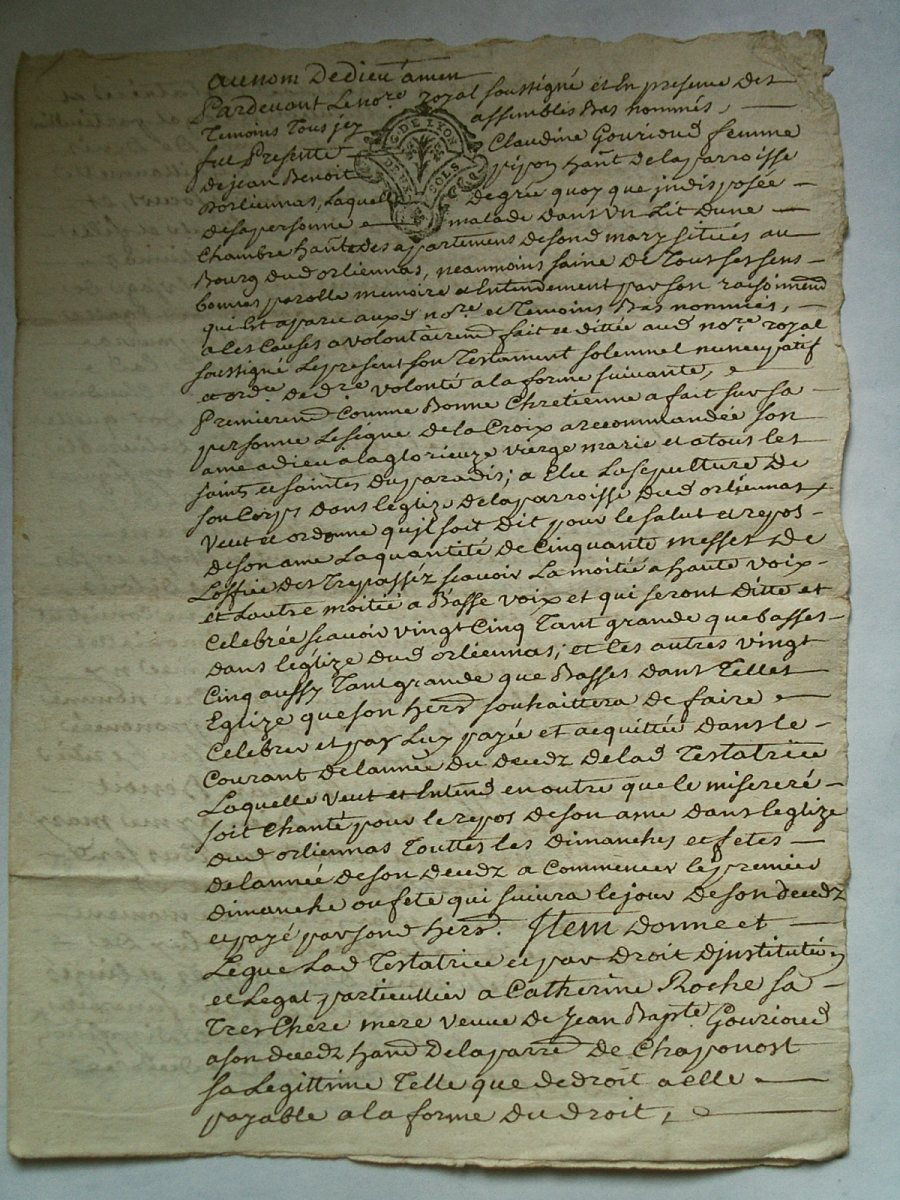 Au nom De dieu amen
Pardevant Le no.re royal soussigné et En presence des
Temoins Tous jcy assemblés Bas nommés,
fut Presente Claudine Gourioud femme
de jean Benoit pipon hant De la parroisse
Dorliennas, Laquelle De gré quoy que jndisposée
de sa personne et malade dans Un Lit dune
Chambre haute des apartemens de sond mary situés au
Bourg dud orliennas, neanmoins saine de Tous ses sens
bonnes parolle memoire et Entendement par son raisonnend
qui Est aparu auxd no.re et Temoins Bas nommés,
a les Causes a volontairend fait et dittée aud no.re royal
soussigné Le present son Testament solemnel nuncupatif
et ord.e de d.re volonté a la forme suivante,
Premierend Comme Bonne Chretienne a fait sur sa
personne Le signe de la Croix a recommandée son
ame a dieu a la glorieuze vierge marie et a tous les
saints et saintes du paradis; a Elu La sepulture de
son Corps dans leglize de la parroisse dud orliennas
Veut et ordonne qu'jl soit dit pour le salut et repos
de son ame La quantité de Cinquante messes de
L'office des Trepasséz scavoir La moitié a haute voix
et Lautre moitié a Basse voix et qui seront Ditte et
Celebrée scavoir vingt Cinq Tant grande que basses
dans leglize dud orliennas; et les autres vingt
Cinq aussy Tant grande que Basses dans Telles
Eglize que son herd souhaittera de faire
Celebrer et par Luy payée et acquittée dans le
Courant de lannée du decedz de lad Testatrice
Laquelle veut et Entend en outre que le misereré
soit Chanté pour le repos de son ame dans leglize
dud orliennas Touttes les dimanches et fetes
de lannée de son decedz a Commencer le premier
dimanche ou fete qui suivra le jour de son decedz
et payé par sond herd. Jtem donne et
Legue Lad Testatrice et par Droit Djnstitution
et Legat particullier a Catherine Roche sa
Tres Chere mere veuve de Jean Bap.te Gourioud
a son decedz hand De la parre de Chaponost
sa Legittime Telle que de droit a elle
payable a la forme du droit,
G. DE LYON
DEUX SOLS